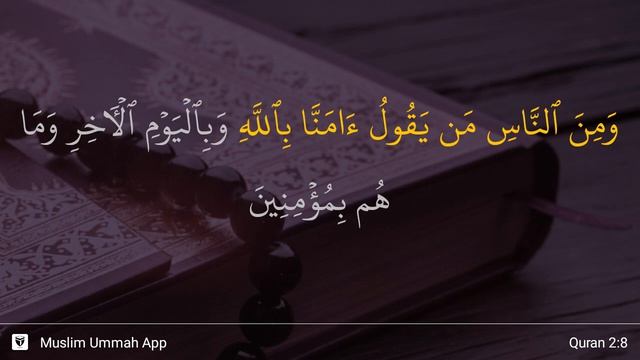 وَمِنَ ٱلنَّاسِ مَن يَقُولُ ءَامَنَّا بِٱللَّهِ وَبِٱلْيَوْمِ ٱلْـَٔاخِرِ وَمَا
هُم بِمُؤْمِنِينَ
Muslim Ummah App
Quran 2:8